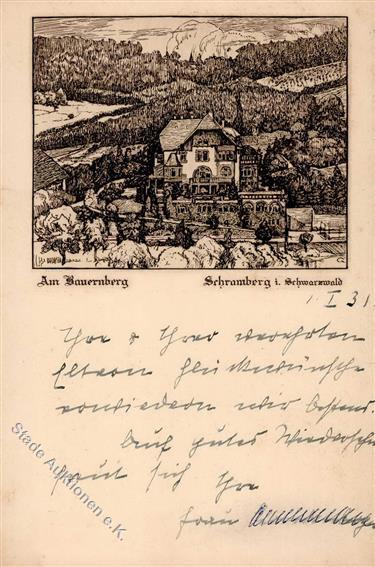 Am Bauernberg Schramberg i. Schwarzwald
1. I 31.
Ihre & Ihrer verehrten
Eltern Glückwünsche
erwiedern wir bestens.
Auf gutes Wiedersehn
freut sich Ihre
Frau
Stade Auktionen e.K.